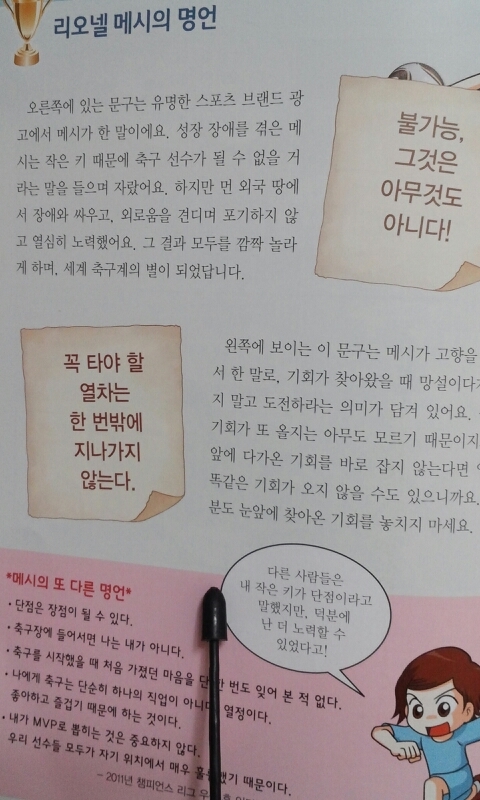 리오넬 메시의 명언
오른쪽에 있는 문구는 유명한 스포츠 브랜드 광
고에서 메시가 한 말이에요. 성장 장애를 겪은 메
시는 작은 키 때문에 축구 선수가 될 수 없을 거
라는 말을 들으며 자랐어요. 하지만 먼 외국 땅에
서 장애와 싸우고, 외로움을 견디며 포기하지 않
고 열심히 노력했어요. 그 결과 모두를 깜짝 놀라
게 하며, 세계 축구계의 별이 되었답니다.
불가능,
그것은
아무것도
아니다!
꼭 타야 할
열차는
한 번밖에
지나가지
않는다.
왼쪽에 보이는 이 문구는 메시가 고향을
서 한 말로, 기회가 찾아왔을 때 망설이다
지 말고 도전하라는 의미가 담겨 있어요.
기회가 또 올지는 아무도 모르기 때문이지
앞에 다가온 기회를 바로 잡지 않는다면
똑같은 기회가 오지 않을 수도 있으니까요.
분도 눈앞에 찾아온 기회를 놓치지 마세요.
*메시의 또 다른 명언*
• 단점은 장점이 될 수 있다.
• 축구장에 들어서면 나는 내가 아니다.
• 축구를 시작했을 때 처음 가졌던 마음을 단 한 번도 잊어 본 적 없다.
• 나에게 축구는 단순히 하나의 직업이 아니다. 열정이다.
좋아하고 즐겁기 때문에 하는 것이다.
• 내가 MVP로 뽑히는 것은 중요하지 않다.
우리 선수들 모두가 자기 위치에서 매우 훌륭했기 때문이다.
– 2011년 챔피언스 리그
다른 사람들은
내 작은 키가 단점이라고
말했지만, 덕분에
난 더 노력할 수
있었다고!